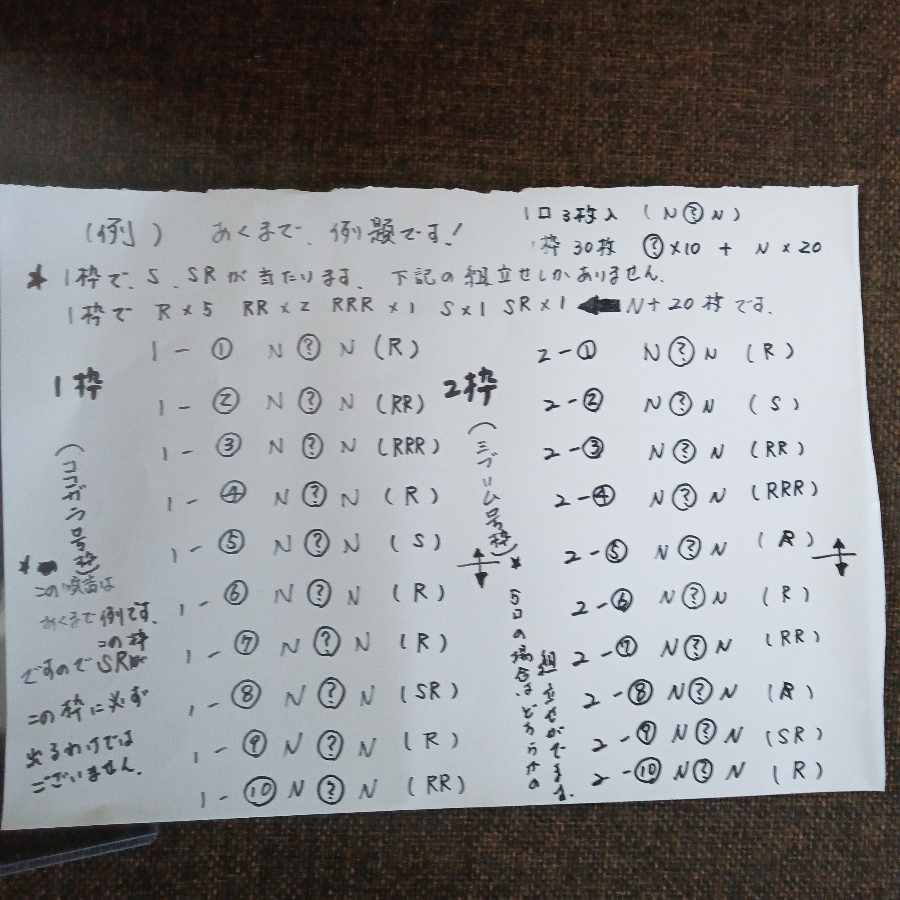 (例) あくまで、例題です!
1口3枚入 (N?N)
1枠30枚 ?×10 + N×20
★1枠で、S、SRが当たります、下記の組立せしかありません、
1枠で R×5 RR×2 RRR×1 S×1 SR×1 ← N+20枚です、
1枠
(ココガラ号枠)
1-① N ? N (R)
1-② N ? N (RR)
1-③ N ? N (RRR)
1-④ N ? N (R)
1-⑤ N ? N (S)
1-⑥ N ? N (R)
1-⑦ N ? N (R)
1-⑧ N ? N (SR)
1-⑨ N ? N (R)
1-⑩ N ? N (RR)
この
あくまで例です、
この枠
ですのでSR
この枠に必ず
出るわけでは
ございません、
2枠
(三ブリム号枠)
2-① N ? N (R)
2-② N ? N (S)
2-③ N ? N (RR)
2-④ N ? N (RRR)
2-⑤ N ? N (R)
2-⑥ N ? N (R)
2-⑦ N ? N (RR)
2-⑧ N ? N (R)
2-⑨ N ? N (SR)
2-⑩ N ? N (R)
★5口の場合は、どちらかの
組立せがでます、